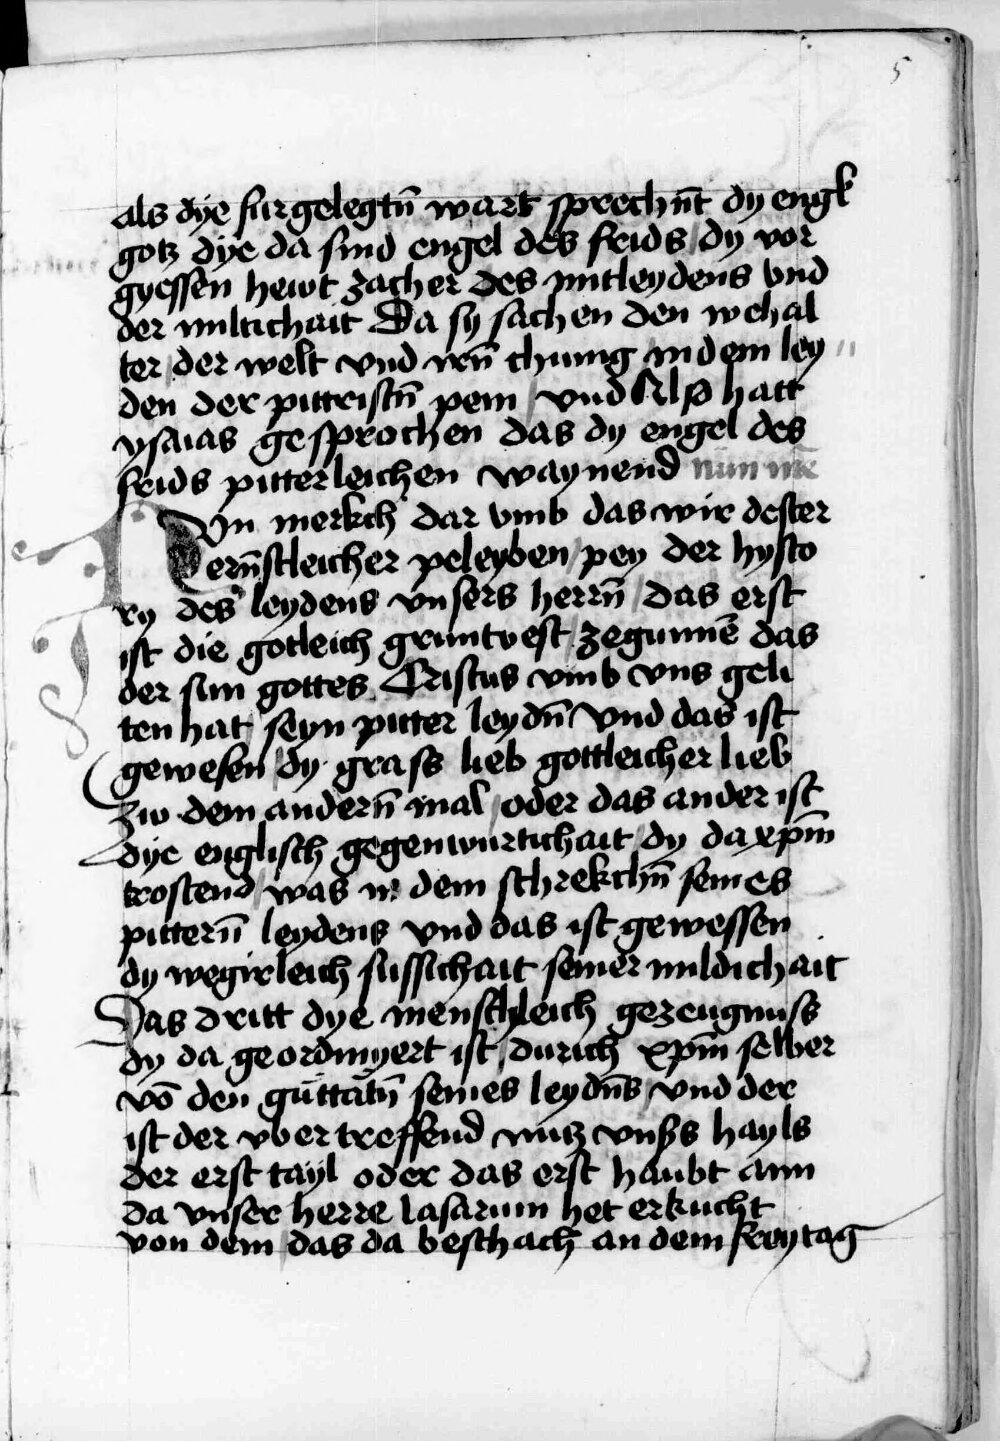 5
als dye fur gelegtn̄ wart sprechn̄t dy engl
gotz dye da sind engel des frids / dy vor
gyessen hewt zacher des mitleydens vnd
der miltichait Da sy sachen den wehal
ter / der welt vnd irn̄ chunig / in dem ley
den der pittristn̄ pein / vnd Also hatt
ysaias gesprochen das dy engel des
frids pitterleichen waynend
Nvn merkch dar vmb das wir dester
ernn̄stleicher peleyben / pey der hysto
ry des leydens vnsers herrn̄ / das erst
ist die gotleich gruntvest
das
der sun gottes Cristus vmb vns geli
ten hat / seyn pitter leydn̄ / vnd das ist
gewesen / dy gross lieb gottleicher lieb
Zw dem andern̄ mal / oder das ander ist
dye englisch gegenwurtichait / dy da xp̄m
trostend / was in dem schrekchn̄ seines
pittern̄ leydens vnd das ist gewessen
dy wegirleich sussichait seiner mildichait
Das dritt dye menschleich gezeugnuss
dy da geordinyert ist / durich xp̄m selber
vō den guttatn̄ seines leydn̄s / vnd der
ist der vbertreffend nutz vnsers hayls
der erst tayl oder das erst haubt ann
da vnser herre lasarum het erkucht
von dem / das da beschach an dem freytag